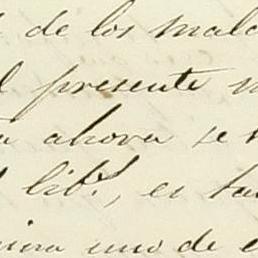 de los mala
presente
ahora se
lib.s, es ta
uno de e